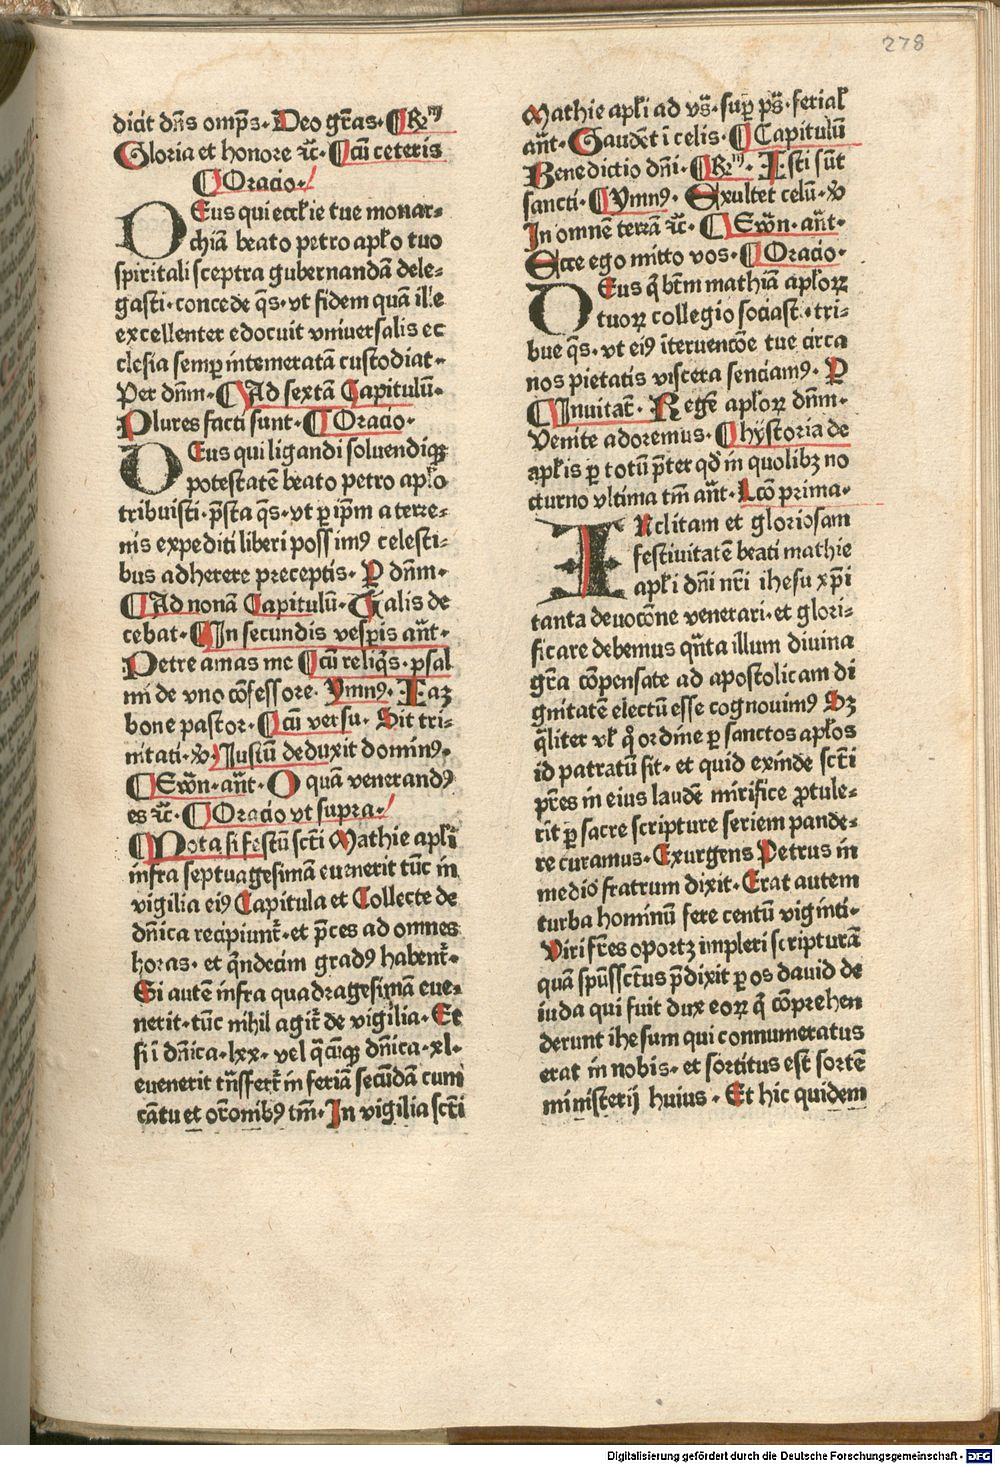 278
dicit dñs omp̄s. Deo gr̄as. ¶ R̄m
Gloria et honore ⁊c̄. ¶ Cū ceteris
¶ Oracio.
DEus qui eccl̄ie tue monar-
chiā beato petro apl̄o tuo
spiritali sceptra gubernandā dele-
gasti. concede q̄s. vt fidem quā ille
excellenter edocuit vniuersalis ec
clesia semp̱ intemeratā custodiat.
Per dn̄m. ¶ Ad sextā Capitulū.
Plures facti sunt. ¶ Oracio.
DEus qui ligandi soluendiqꝫ
potestatē beato petro apl̄o
tribuisti. p̄sta q̄s. vt ꝑ ip̄m a terre-
nis expediti liberi possimꝰ celesti-
bus adherere preceptis. P dn̄m.
¶ Ad nonā Capitulū. Talis de
cebat. ¶ In secundis vesp̱is an̄t.
Petre amas me ¶ cū reliq̄s. psal
mi de vno cōfessore. Ymnꝰ. Iaꝫ
bone pastor. ¶ cū versu. Sit tri-
nitati. ꝟ. Iustū deduxit dominꝰ.
¶ Ewn̄. an̄t. O quā venerandꝰ
es ⁊c̄. ¶ Oracio vt supra.
¶ Nota si festū sc̄ti Mathie apl̄i
infra septuagesimā euenerit tūc in
vigilia eiꝰ Capitula et Collecte de
dn̄ica recipiunt̄. et p̄ces ad omnes
horas. et q̄ndecim gradꝰ habent̄.
Si autē infra quadragesimā eue-
nerit. tūc nihil agit̄ de vigilia. Et
si ī dn̄ica. lxx. vel q̄cūqꝫ dn̄ica. xl.
euenerit tn̄sfert̄ in feriā secūdam cum
cātu et or̄onibꝰ tm̄. In vigilia sc̄ti
Mathie apl̄i ad vs̄. sup̱ ps̄. ferial̄
an̄t. Gaudēt ī celis. ¶ Capitulū
Benedictio dn̄i. ¶ R̄m. Isti sūt
sancti. ¶ Ymnꝰ. Exultet celū. ꝟ
In omnē terrā ⁊c̄. ¶ Ewn̄. an̄t.
Ecce ego mitto vos. ¶ Oracio.
DEus q̄ btm̄ mathiā apl̄oꝝ
tuoꝝ collegio sociasti. tri-
bue q̄s. vt eiꝰ īteruencōe tue circa
nos pietatis viscera senciamꝰ. P
¶ Inuitat̄. Regē apl̄oꝝ dn̄m.
Venite adoremus. ¶ hystoria de
apl̄is ꝑ totū p̄ter qd̄ in quolibꝫ no
cturno vltima tm̄ an̄t. Lcō prima.
INclitam et gloriosam
festiuitatē beati mathie
apl̄i dn̄i nr̄i ihesu xp̄i
tanta deuocōne venerari. et glori-
ficare debemus qn̄ta illum diuina
gr̄a cōpensate ad apostolicam di
gnitatē electū esse cognouimꝰ Sꝫ
q̄liter vl̄ q̄ ordine ꝑ sanctos apl̄os
id patratū sit. et quid exinde sc̄ti
pr̄es in eius laudē mirifice ꝓtule-
rīt ꝑ sacre scripture seriem pande-
re curamus. Exurgens Petrus in
medio fratrum dixit. Erat autem
turba hominū fere centū viginti.
Viri fr̄es oportꝫ impleri scripturā
quā sp̄ussc̄tus p̄dixit ꝑ os dauid de
iuda qui fuit dux eoꝝ q̄ cōprehen
derunt ihesum qui connumeratus
erat in nobis. et sortitus est sortē
ministerij huius. Et hic quidem
Digitalisierung gefördert durch die Deutsche Forschungsgemeinschaft - DFG